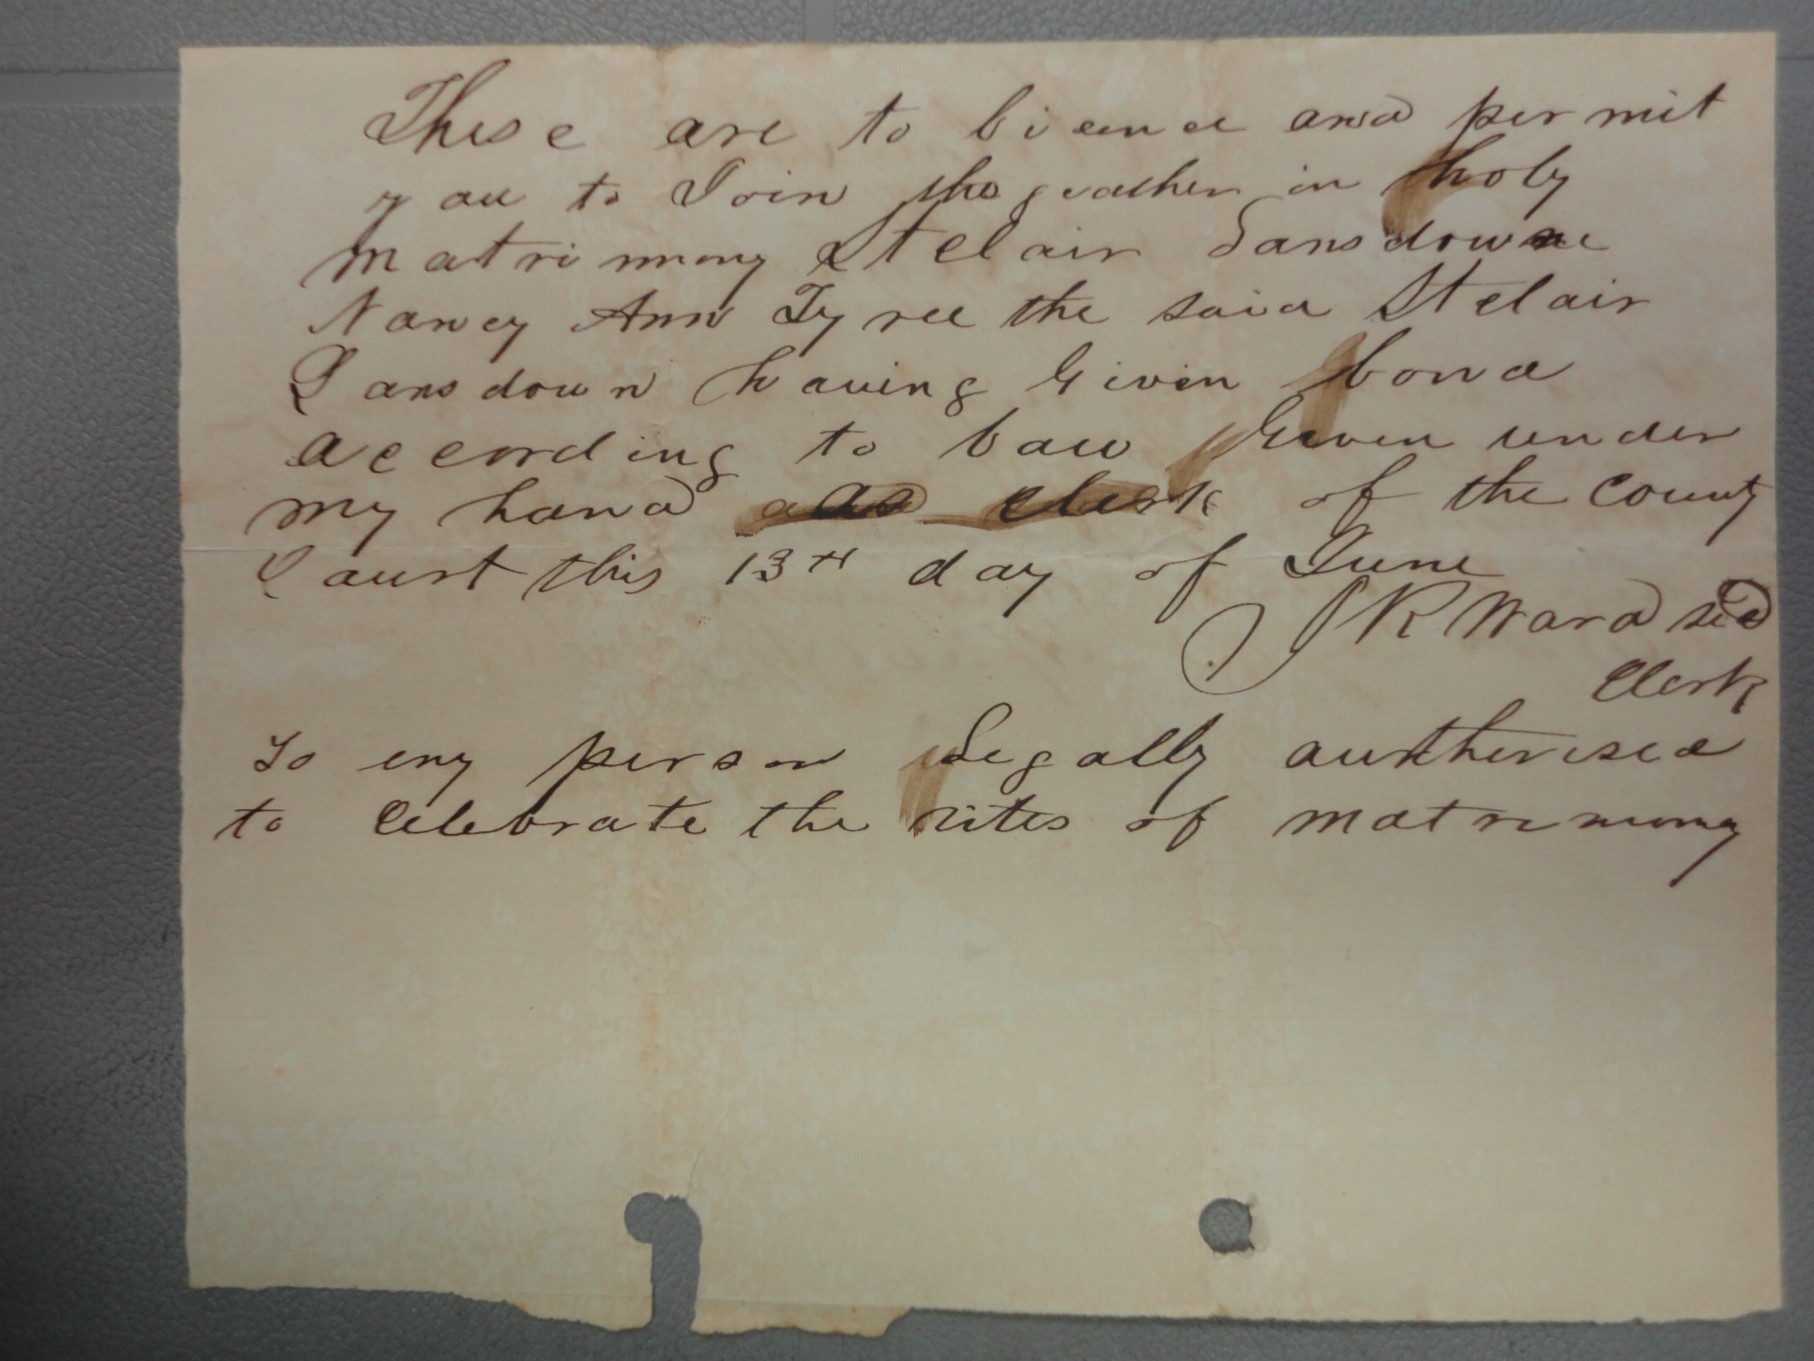 These are to licence and permit
you to Join the geather in holy
matrimony St clair Lansdowne
Nancy Ann Tyree the said St clair
Lansdown having Given bond
according to law Given under
my hand as clerk of the county
Court this 13th day of June
J R Ward
Clerk
To eny person Legally autherised
to Celebrate the rites of matrimony